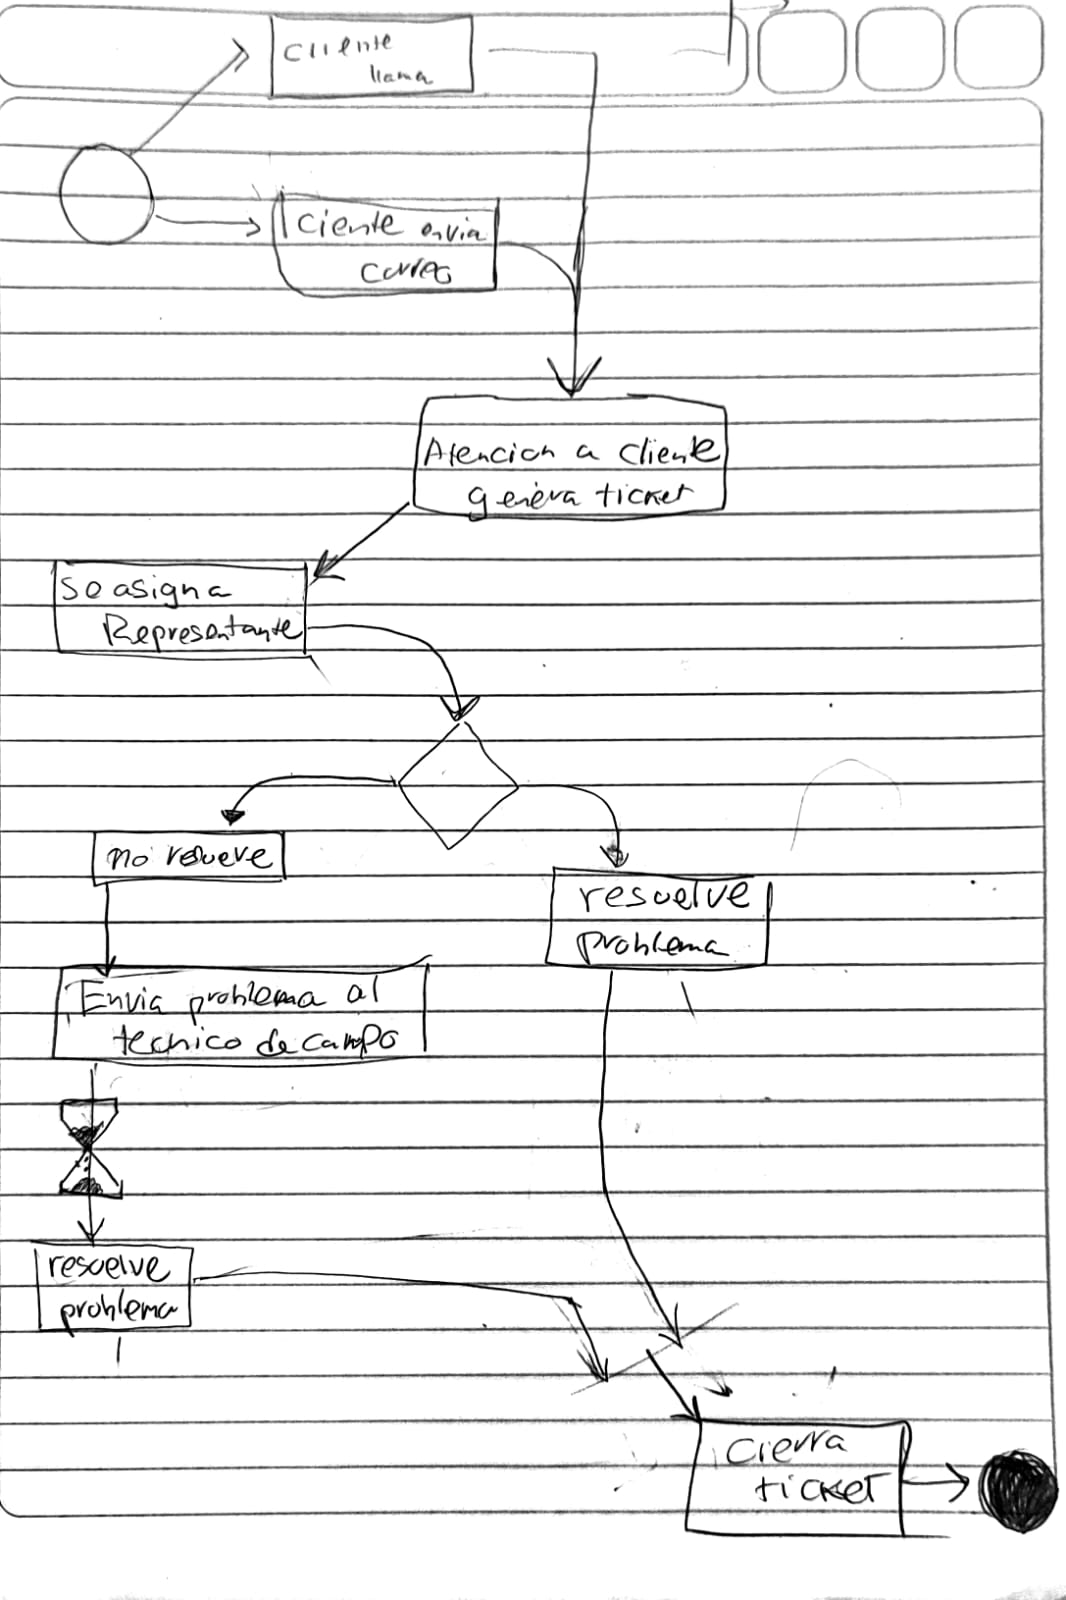 Cliente
llama
Ciente envia
correo
Atencion a cliente
genera ticket
se asigna
Representante
no resueve
resuelve
problema
Envia problema al
tecnico de campo
resuelve
problema
Cierra
ticket